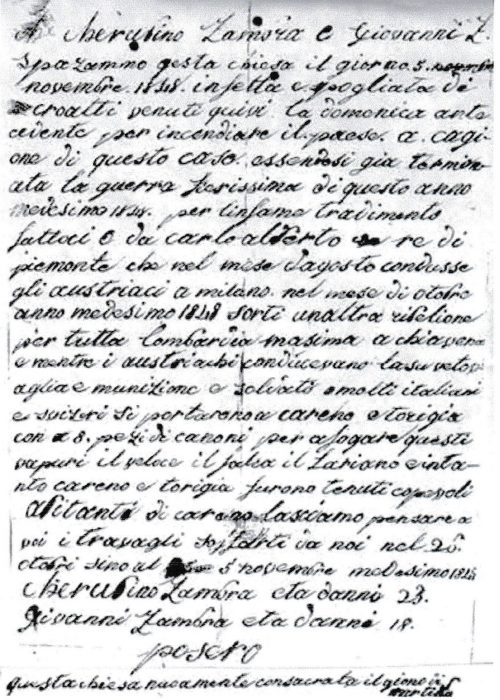 Cherubino Zambra e Giovanni Z.
spazammo qesta chiesa il giorno 5. novembre
novembre. 1848. infetta e spogliata de
croatti venuti quivi. la domenica ante
cedente per incendiare il paese. a. cagi
one di questo caso. essendosi gia termin
ata la guerra ferissima di questo anno
medesimo 1848. per linfame tradimento
fattoci da carlo alberto re di
piemonte che nel mese dagosto condusse
gli austriaci a milano. nel mese di otobre
anno medesimo 1848 sorti unaltra ribelione
per tutta lombardia masima a chiavena
e mentre i austriachi conducevano la su vetov
aglia e munizione e soldati molti italiani
e suizeri si portarono a careno e torigia
con 8. pezi di canoni per afogare questi
vapuri il veloce il falsa il Lariano e inta
nto careno e torigia furono tenuti copevoli
abitanti di careno lasciamo pensare a
voi i travagli sofferti da noi nel 28.
otobri sino al 5 novembre medesimo 1848
Cherubino Zambra eta danni 23.
Giovanni Zambra eta danni 18.
posero
questa chiesa nuvamente consacrata il giono